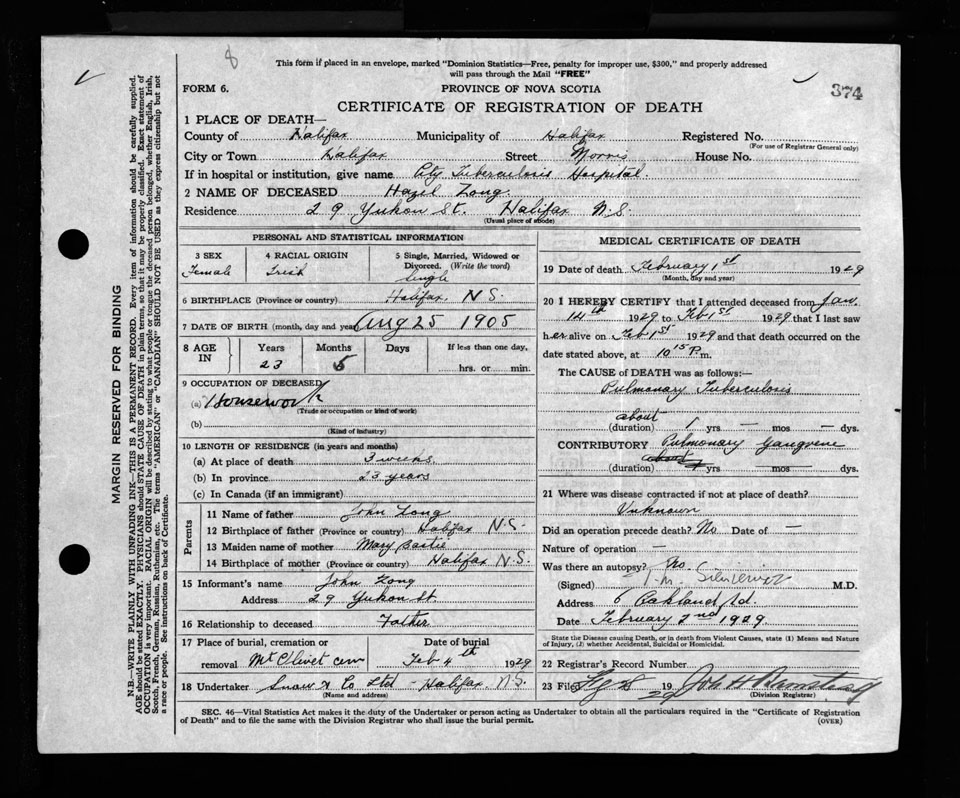 8
This form if placed in an envelope, marked "Dominion Statistics—Free, penalty for improper use, $300," and properly addressed
will pass through the Mail "FREE"
FORM 6. PROVINCE OF NOVA SCOTIA 374
CERTIFICATE OF REGISTRATION OF DEATH
1 PLACE OF DEATH—
County of Halifax Municipality of Halifax Registered No.
(For use of Registrar General only)
City or Town Halifax Street Morris House No.
If in hospital or institution, give name City Tuberculosis Hospital.
2 NAME OF DECEASED Hazel Long.
Residence 29 Yukon St. Halifax N.S.
(Usual place of abode)
PERSONAL AND STATISTICAL INFORMATION
3 SEX Female
4 RACIAL ORIGIN Irish
5 Single, Married, Widowed or
Divorced. (Write the word)
Single
6 BIRTHPLACE (Province or country) Halifax, N.S.
7 DATE OF BIRTH (month, day and year) Aug 25 1905
8 AGE IN Years Months Days If less than one day,
23 5 hrs. or min.
9 OCCUPATION OF DECEASED
(a) Housework
(Trade or occupation or kind of work)
(b)
(Kind of industry)
10 LENGTH OF RESIDENCE (in years and months)
(a) At place of death 3 weeks.
(b) In province 23 years
(c) In Canada (if an immigrant)
Parents
11 Name of father John Long
12 Birthplace of father (Province or country) Halifax N.S.
13 Maiden name of mother Mary
14 Birthplace of mother (Province or country) Halifax N.S.
15 Informant's name John Long
Address 29 Yukon st.
16 Relationship to deceased Father
17 Place of burial, cremation or Date of burial
removal Mt Olivet cem Feb 4th 1929
18 Undertaker Snow & Co Ltd - Halifax. N.S.
(Name and address)
MEDICAL CERTIFICATE OF DEATH
19 Date of death February 1st 1929
(Month, day and year)
20 I HEREBY CERTIFY that I attended deceased from Jan.
14th 1929 to Feb 1st 1929 that I last saw
h er alive on Feb 1st 1929 and that death occurred on the
date stated above, at 10 15 P.m.
The CAUSE of DEATH was as follows:—
Pulmonary Tuberculosis
about
(duration) 1 yrs — mos — dys.
CONTRIBUTORY Pulmonary Gangrene
(duration) yrs — mos — dys.
21 Where was disease contracted if not at place of death?
Unknown
Did an operation precede death? No Date of —
Nature of operation —
Was there an autopsy? No.
(Signed) M.D.
Address 6 Oakland Rd.
Date February 2nd 1929
State the Disease causing Death, or in death from Violent Causes, state (1) Means and Nature
of Injury, (2) whether Accidental, Suicidal or Homicidal.
22 Registrar's Record Number
23 Filed 19 29
(Division Registrar)
SEC. 46—Vital Statistics Act makes it the duty of the Undertaker or person acting as Undertaker to obtain all the particulars required in the "Certificate of Registration
of Death" and to file the same with the Division Registrar who shall issue the burial permit.
(OVER)
MARGIN RESERVED FOR BINDING
N.B.—WRITE PLAINLY WITH UNFADING INK—THIS IS A PERMANENT RECORD. Every item of information should be carefully supplied.
AGE should be stated EXACTLY. PHYSICIANS should STATE CAUSE OF DEATH in plain terms, so that it may be properly classified. Exact statement of
OCCUPATION is very important. RACIAL ORIGIN will be described by stating to what people or tongue the deceased person belonged, whether English, Irish,
Scotch, French, German, Russian, Ruthenian, etc. The terms "AMERICAN" or "CANADIAN" SHOULD NOT BE USED as they express citizenship but not
a race or people. See instructions on back of Certificate.